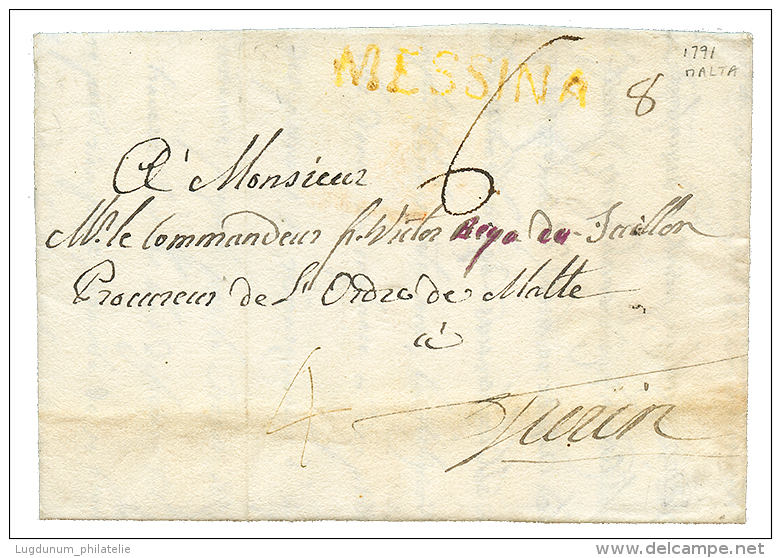 MESSINA
1791
MALTA
6
8
A' Monsieur
Mr. le Commandeur fr. Victor
Procureur de L'Ordre de Malte
à
4
Turin
Lugdunum_philatelie
delcampe.net